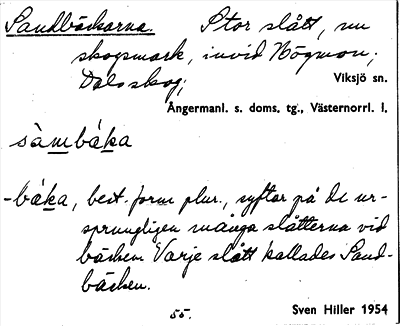 Sandbäckarna. Stor slått, nu
skogsmark, invid Högmon;
Dalsskog;
Viksjö sn.
Ångermanl. s. doms. tg., Västernorrl. l.
sàmbáka
-báka, best. form plur., syftar på de ur-
sprungligen många slåtterna vid
bäcken. Varje slått kallades Sand-
bäcken.
55.
Sven Hiller 1954